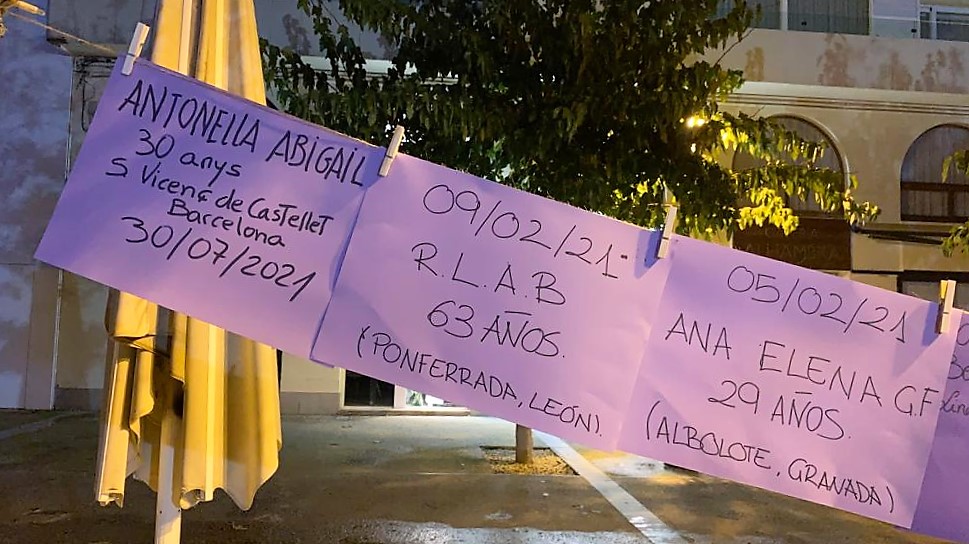 ANTONELLA ABIGAIL
30 anys
S Vicenç de CasTelleT
Barcelona
30/07/2021
09/02/21-
R.L.A.B
63 AÑOS.
(PONFERRADA, LEÓN).
05/02/21
ANA ELENA G.F
29 AÑOS.
(ALBOLOTE, GRANADA)